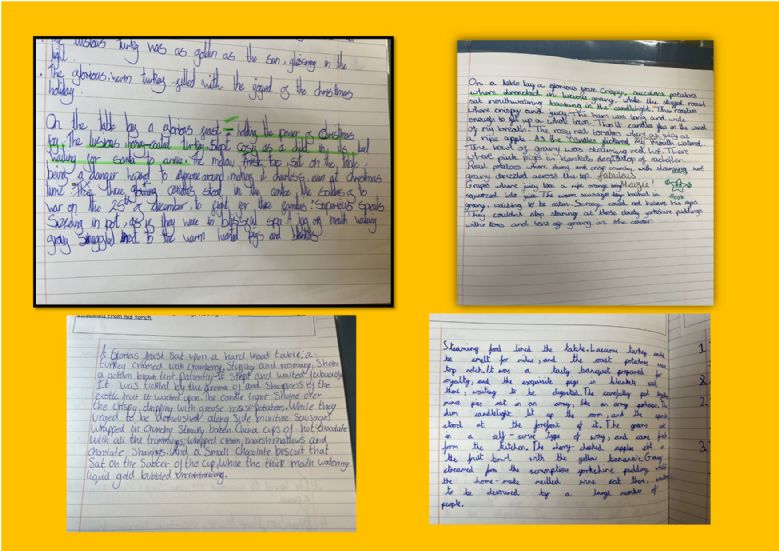 light.
The glorious, warm turkey filled with the joyed of the christmas
holiday.
On the table lay a glorious feast - holding the power of Christmas
joy. The lusious honey-coated turkey slept cosy as a child in its bed
waiting for santa to arrive. The melow
being a danger hazard to everyone around, making it
time. These three glowing candles stood, in the centre, like soldiers to
war on the 25th december, to fight for there
Sizzling in pot, as if they were in blissful spa. A jug of mouth watering
gravy snuggled next to the warm hearted pigs and blankets
On a table lay a glorious feast. Crispy, succulent potatoes
where drenched in luscious gravy, while the stuffed roast
sat mouthwatering basking in the candlelight. The
where crispy and juicy. The ham was long and wide
enough to fill up a whole town. The lit candles
of my breath. The rosy red tomatoes where as juicy as
a ripe apple. As the candles flickered my mouth watered.
The bowl of gravy was steaming red hot. There
what pork pigs in blankets
Roast potatoes where shiny and crunchy, with
gravy drizzled across the top. Fabulous
Grapes where juicy like a ripe orange Maizie!
squeezed into juice. The warm sausages lay bathed in
gravy, waiting to be eaten. Scrooge could not believe his eyes.
They couldn't stop starving at those tasty yorkshire puddings
with tons and tons of gravy in the center.
A Glorias feast sat upon a hard wood table, a
turkey crammed with cranberry, stuffing and rosemary, Shone
a golden brown tint. Patiently it slept and waited
It was tickled by the aroma of and sharpness of the
exotic fruit it waited upon. The candle light shone over
the crispy, dripping with grease roast potatoes, While they
urged to be demolished along side miniture sausages
wrapped in crunchy streaky bacon. China cups of hot chocolate
with all the trimmings, whipped cream, marshmallows and
chocolate shavings. And a small chocolate biscuit that
Sat on the sauser of the cup, while the thick mouth watering
liquid gold bubbled
Steaming food lined the table. Luscious turkey could
be smelt for miles, and the roast potatoes were
top notch. It was a tasty banquet prepared for
royalty, and the exquisite pigs in blankets sat
there, waiting to be digested. The carefully put together
mince pies sat in an army, like an army
dim candlelight lit up the room, and the
stood at the forefront of it. The
in a self-serve type of way, and came fresh
from the kitchen. The cherry-shaded apples sat in
the fruit bowl with the yellow bananas. Gravy
streamed from the scrumptious yorkshire pudding while
the home-made mulled wine sat there, waiting
to be devoured by a large number of
people.